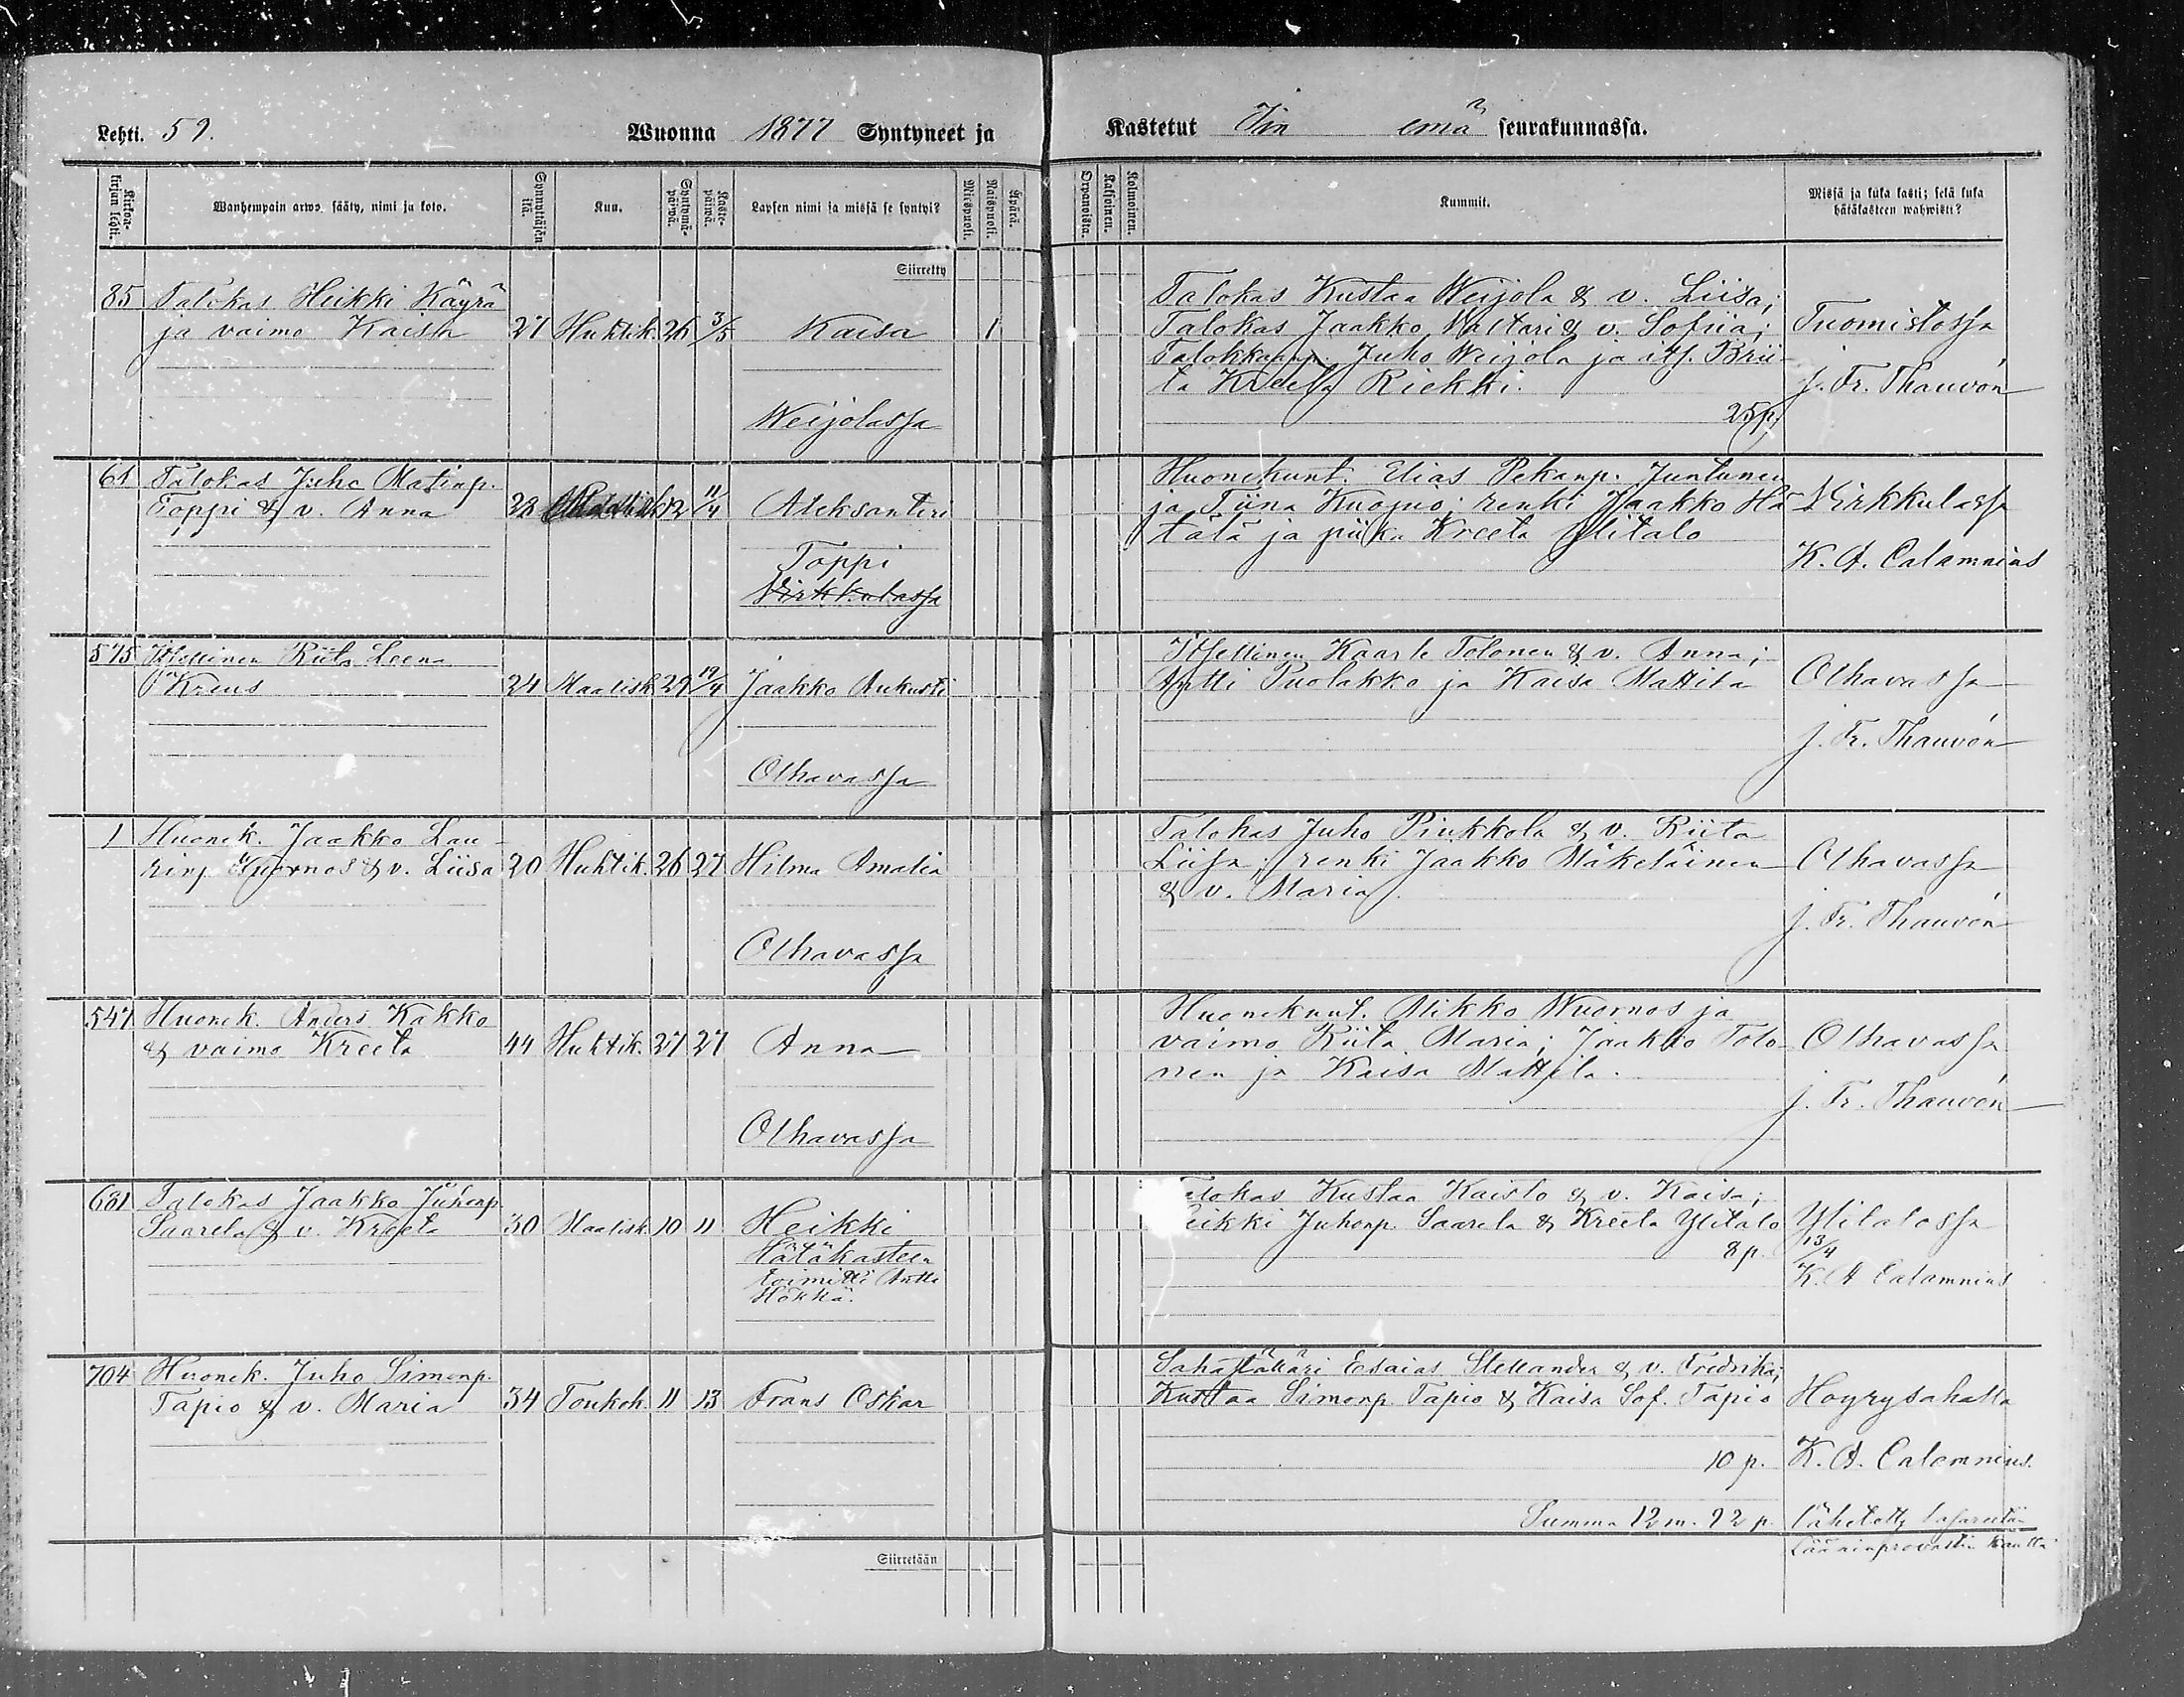 Lehti. 59. Wuonna 1877 Syntyneet ja
Kastetut Iin emä seurakunnassa.
Kirkonkirjan lehti.
Wanhempain arwo, sääty, nimi ja koto.
Synnyttäjän ikä.
Kuu.
Syntymäpäiwä.
Kastepäiwä.
Lapsen nimi ja missä se syntyi?
Miespuoli.
Waispuoli.
Äpärä.
Orpanoista.
Kaksoinen.
Kolmoinen.
Kummit.
Missä ja kuka kasti; sekä kuka
hätäkasteen wahwisti?
Siirretty
85 Talokas Heikki Käyrä
ja vaimo Kaisa 27 Huhtik. 26 3/5 Kaisa 1
Weijolassa
Talokas Kustaa Weijola & v. Liisa;
Talokas Jaakko Valtari & v. Sofiia;
Talokkaanp. Juho Weijola ja its. Brii-
ta Kreeta Riekki.
25 p.
Tuomistossa
J. Fr. Thauvón
61 Talokas Juho Matinp.
Toppi & v. Anna 28 12 11/4 Aleksanteri
Toppi
Virkkulassa
Huonekunt. Elias Pekanp. Juntunen
ja Tiina Kuopus; renki Jaakko Hä-
tälä ja piika Kreeta Ylitalo
Virkkulassa
K. A. Calamnius
575 Itsellinen Riita Leena
Kreus 24 Maalisk. 29 19/4 Jaakko Aukusti
Olhavassa
Itsellinen Kaarle Tolonen & v. Anna;
Antti Puolakko ja Kaisa Mattila
Olhavassa
J. Fr. Thauvón
1 Huonek. Jaakko Lau-
rinp. Wuornos & v. Liisa 20 Huhtik. 26 27 Hilma Amalia
Olhavassa
Talokas Juho Pinkkola & v. Riita
Liisa; renki Jaakko Mäkeläinen
& v. Maria.
Olhavassa
J. Fr. Thauvón
547 Huonek. Anders Kakko
& vaimo Kreeta 44 Huhtik. 27 27 Anna
Olhavassa
Huonekunt. Mikko Wuornos ja
vaimo Riita Maria; Jaakko Tolo-
nen ja Kaisa Mattila.
Olhavassa
J. Fr. Thauvón
681 Talokas Jaakko Juhonp.
Saarela & v. Kreeta 30 Maalisk. 10 11 Heikki
Hätäkasteen
toimitti Antti
Hökkä.
Talokas Kustaa Kaisto & v. Kaisa;
Heikki Juhonp. Saarela & Kreeta Ylitalo
8 p.
Ylitalossa
13/4
K. A Calamnius
704 Huonek. Juho Simonp.
Tapio & v. Maria 34 Toukok. 11 13 Frans Oskar
Esaias Stellander & v. Fredrika;
Kustaa Simonp. Tapio & Kaisa Sof. Tapio
10 p.
Höyrysahalla
K. A. Calamnius.
Summa 12 m. 92 p.
Lähetetty lasarettiin
Lääninprovastin kautta
Siirretään